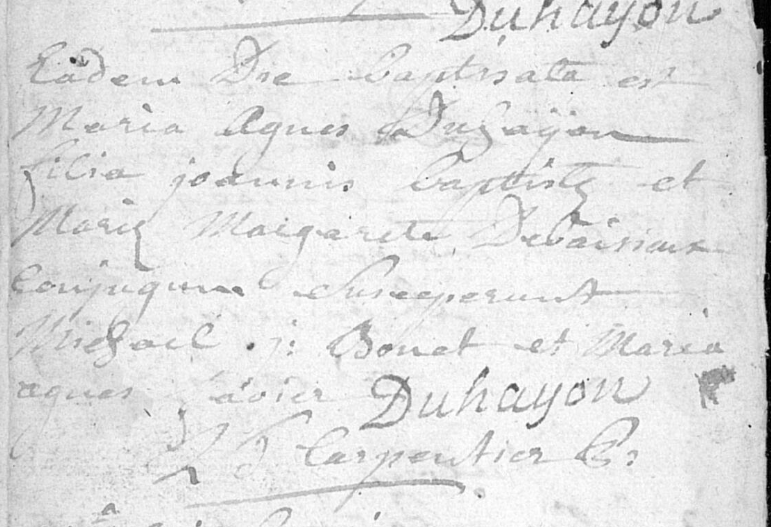 Duhayon
Eadem Die baptisata est
Maria Agnes Duhayon
filia joannis baptistę et
Marię Maigarete Devaissaux
conjugum Susceperunt
Michael j: Bonet et Maria
agnes Duhayon
Carpentier